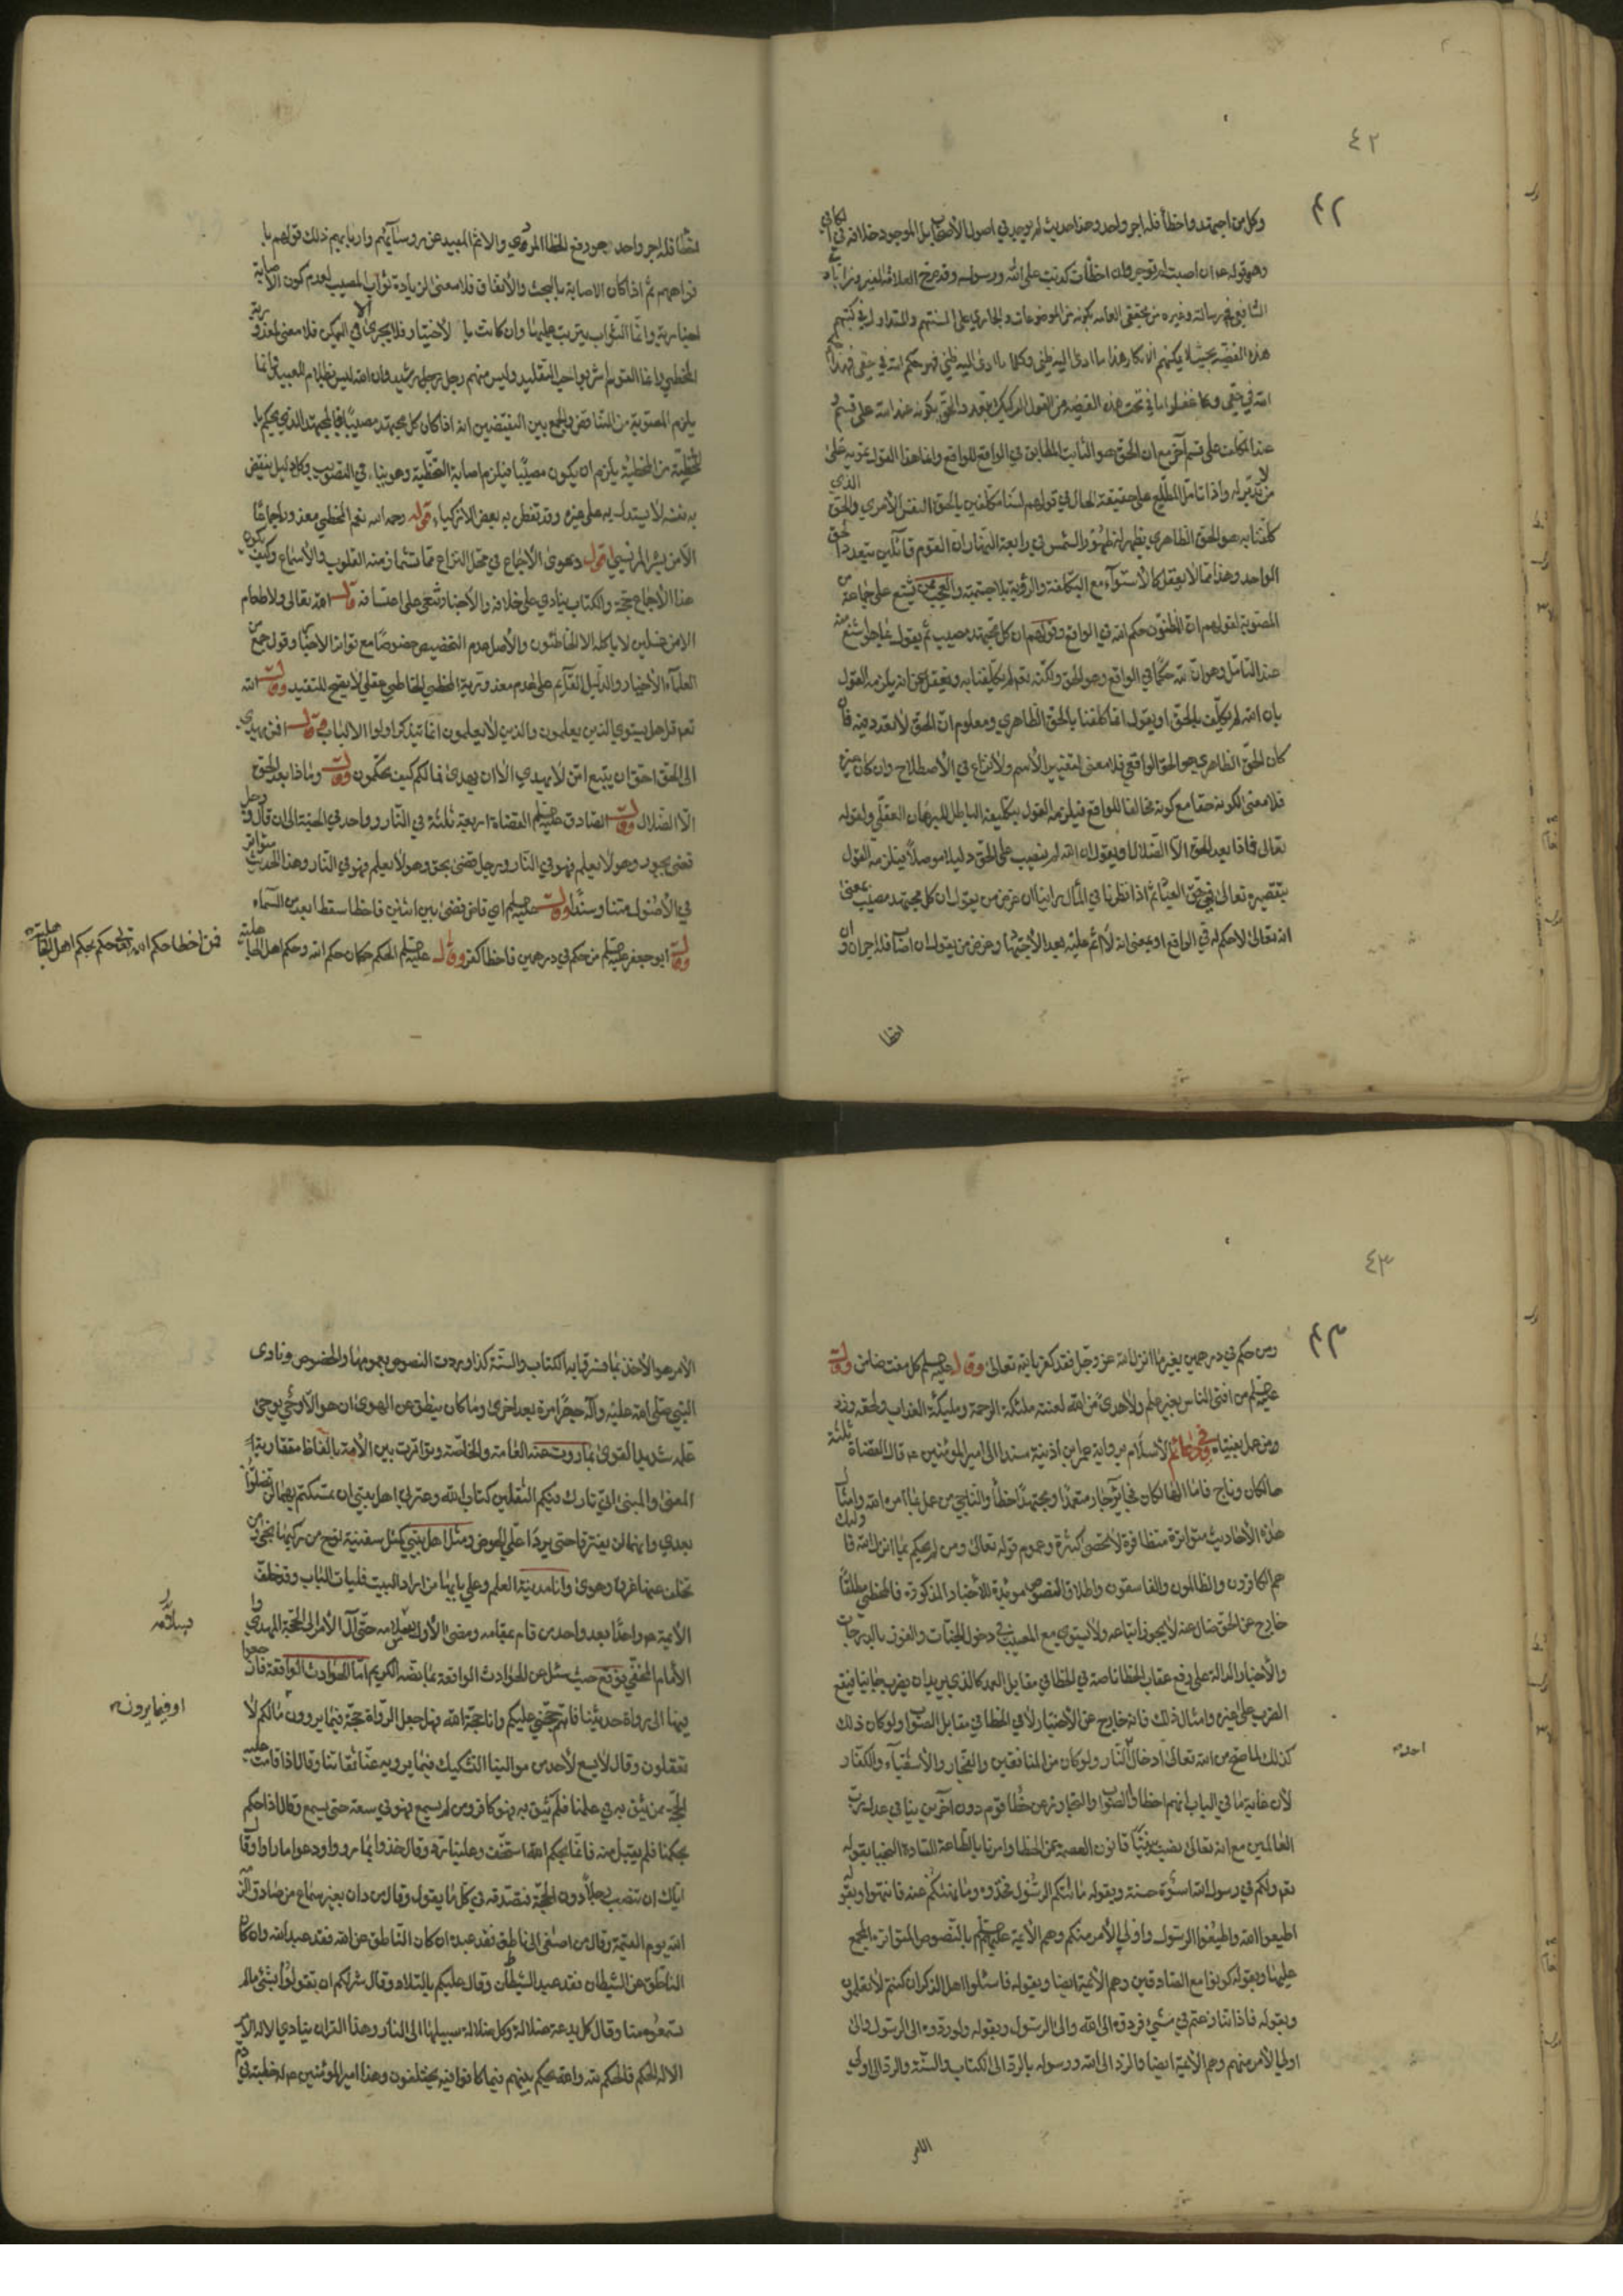 ٤٢
٤٢
وكل من اجتهد واخطأ فله اجر واحد وهذا حديث لم يوجد في اصول الأصحاب بل الموجود خلافه في الكافي
وهو قوله ان اصبت لم توجر وان اخطأت كذبت على الله ورسوله وقد صرح العلامة
الشافعي في رسالته وغيره من محققي العامه بكونه من الموضوعات والجاري على السنتهم والمتداول في كتبهم
هذه القضية بحيث لا يمكنهم الانكار هذا ما ادى اليه ظني وكلما ما ادى اليه ظني فهو حكم الله في حقي فهذا حكم
الله في حقي وكما غفلوا ما في تحت هذه القضية من القول الركيك بتعدد الحق بكونه عند الله على قسم و
عند المكلف على قسم آخر مع ان الحق هو الثابت المطابق في الواقع للواقع وهذا القول تمويه على
من لا تدبر له واذا تامل المطلع على حقيقة الحال في قولهم لسنا مكلفين بالحق النفس الأمري والحق الذي
كلفنا به هو الحق الظاهري يظهر له ظهور الشمس في رابعة النهار ان القوم قائلين بتعدد الحق
الواحد وهذا مما لا يعقل كالاستواء مع التكلفة والرؤية بلا جسمية والعجب ممن يشنع على جماعة من
المصوبة لقولهم ان المظنون حكم الله في الواقع وقولهم ان كل مجتهد مصيب ثم يقول بما هو اشنع منه
عند التامل وهو ان لله حكما في الواقع وهو الحق ولكنه تعالى لم يكلفنا به ويغفل عن انه يلزمه القول
بان الله لم يكلف بالحق او يقول انما كلفنا بالحق الظاهري ومعلوم ان الحق لا تعدد فيه فان
كان الحق الظاهري هو الحق الواقعي فلا معنى لتغيير الأسم ولا نزاع في الأصطلاح وان كان غيره
فلا معنى لكونه حقا مع كونه مخالفا للواقع فيلزمه القول بتكليفه الباطل للبرهان العقلي ولقوله
تعالى فماذا بعد الحق الا الضلال او يقول ان الله لم ينصب على الحق دليلا موصلا فيلزمه القول
بتقصيره تعالى في حق العباد ثم اذا نظرنا في المآل راينا ان غرض من يقول ان كل مجتهد مصيب بمعنى
انه تعالى لا حكم له في الواقع او بمعنى انه لا اثم عليه بعد الأجتهاد وغرض من يقول ان اصاب فله اجران وان
اخطا
اخطأ فله اجر واحد هو رفع الخطأ المردي والاثم المبيد عن رؤسائهم واربابهم ذلك قولهم با
فواههم ثم اذا كان الاصابة بالبحث والأتفاق فلا معنى لزيادة ثواب المصيب لعدم كون الاصابة
اختيارية وانما الثواب يترتب عليها وان كانت با لأختيار فلا يجري في الممكن الا فلا معنى لمعذورية
المخطي وانما القوم اشربوا حب التقليد وليس منهم رجل رجل رشيد وان الله ليس بظلام للعبيد وانما
يلزم المصوبة من التناقض والجمع بين النقيضين انه اذا كان كل مجتهد مصيبا فالمجتهد الذي يحكم با
لتخطئة من المخطئة يلزم ان يكون مصيبا فيلزم اصابة التخطئة وهو ينافي التصويب وكل دليل ينقض
به نفسه لا يستدل به على غيره وقد تفطن به بعض الأزكياء قوله رحمه الله نعم المخطي معذور اجماعا
الا من بشر المريسي اقول دعوى الأجماع في محل النزاع مما تشمأز منه القلوب والأسماع وكيف يكون
هذا الأجماع حجة والكتاب ينادي على خلافه والأخبار تنعى على اعتسافه قال الله تعالى ولا طعام
الا من غسلين لا ياكله الا الخاطئون والأصل عدم التخصيص خصوصا مع تواتر الأخبار وقول جمع من
العلماء الأخيار والدليل القائم على عدم معذورية المخطي الخاطي عقلي لا يصح للتقييد وقال الله
تعالى قل هل يستوي الذين يعلمون والذين لا يعلمون انما يتذكر اولوا الالباب وقال افمن يهدي
الى الحق احق ان يتبع امن لا يهدي الا ان يهدى فمالكم كيف تحكمون وقال وماذا بعد الحق
الا الضلال وقال الصادق عليه السلم القضاة اربعة ثلثة في النار وواحد في الجنة الى ان قال ورجل
قضى بجور وهو لا يعلم فهو في النار ورجل قضى بحق وهو لا يعلم فهو في النار وهذا الحديث متواتر
في الأصول متنا وسندا وقال عليه السلم اي قاض قضى بين اثنين فاخطا سقط ابعد من السماء
وقال ابو جعفر عليه السلم من حكم في درهمين فاخطا كفر وقال عليه السلم الحكم حكمان حكم الله وحكم اهل الجاهلية
فمن اخطا حكم الله تعالى حكم بحكم اهل الجاهلية
٤٣
٤٣
ومن حكم في درهمين بغير ما انزل الله عز وجل فقد كفر بالله تعالى وقال عليه السلم كل مفت ضامن وقال
عليه السلم من افتى الناس بغير علم ولا هدى من الله لعنته ملئكة الرحمة ومليكة العذاب ولحقه وزر
من عمل بفتياه وفي دعائم الأسلام رواية عمر بن اذينة مسندا الى امير المؤمنين ع قال القضاة ثلثة
هالكان وناج فاما الهالكان فجائر جار متعمدا ومجتهد اخطأ والناجي من عمل بما امره الله وامثال
هذه الأحاديث متواترة متظافرة لا تحصى كثرة وعموم قوله تعالى ومن لم يحكم بما انزل الله فاولئك
هم الكافرون والظالمون والفاسقون واطلاق النصوص مويدة للأخبار المذكورة فالمخطي مطلقا
خارج عن الحق ضال عنه لا يجوز اتباعه ولا يستوي مع المصيب في دخول الجنات والفوز بالدرجات
والأخبار الدالة على رفع عقاب الخطا ناصة في الخطا في مقابل العمد كالذي يريد ان يضرب جانيا فيقع
الضرب على غيره وامثال ذلك فانه خارج عن الأختيار لا في الخطا في مقابل الصواب ولو كان ذلك
كذلك لما صح من الله تعالى ادخال احد النار ولو كان من المنافقين والفجار والأشقياء والكفار
لأن غاية ما في الباب انهم اخطاوا الصواب والتجاوز عن خطا قوم دون آخرين ينافي عدل رب
العالمين مع انه تعالى نصب بيننا قانون العصمة عن الخطا وامرنا بالطاعة القادة النجبا بقوله
لقد ولكم في رسول الله اسوة حسنة وبقوله ما آتيكم الرسول فخذوه وما نهيكم عنه فانتهوا وبقوله
اطيعوا الله واطيعوا الرسول واولي الأمر منكم وهم الأئمة عليهم السلم بالنصوص المتواترة المجمع
عليها وبقوله كونوا مع الصادقين وهم الأئمة ايضا وبقوله فاسئلوا اهل الذكر ان كنتم لا تعلمون
وبقوله فاذا تنازعتم في شيء فردوه الى الله والى الرسول وبقوله ولو ردوه الى الرسول والى
اولي الأمر منهم وهم الأئمة ايضا والرد الى الله ورسوله بالرد الى الكتاب والسنة والرد الى اولي
احد
الامر
الأمر هو الأخذ بما فسر فابه الكتاب والسنة كذا وردت النصوص بعمومها والخصوص ونادى
النبي صلى الله عليه وآله جهارا مرة بعد اخرى وما كان ينطق عن الهوى ان هو الا وحي يوحى
علمه شديد القوى بما روت عنه العامة والخاصة وتواترت بين الأمة بالفاظ متقاربة
المعنى والمبنى اني تارك فيكم الثقلين كتاب الله وعترتي اهل بيتي ان تمسكتم بهما لن تضلوا
بعدي وانهما لن يفترقا حتى يردا علي الحوض ومثل اهل بيتي كمثل سفينة نوح من ركبها نجى ومن
تخلف عنها غرق وهوى وانا مدينة العلم وعلي بابها من اراد البيت فليات الباب وقد خلف
الأئمة واحدا بعد واحد من قام بمقامه ومضى الأول بسلامه حتى آل الأمر الى الحجة المهدي وا
الأمام المخفي توقع حيث سئل عن الحوادث الواقعة بما نصه الكريم اما الحوادث الواقعة فارجعوا
فيها الى رواة حديثنا فانهم حجتي عليكم وانا حجة الله فهل جعل الرواة حجة فيما يروون مالكم لا
تعقلون وقال لا يسع لأحد من موالينا التشكيك فيما يرويه عنا ثقاتنا وقال اذا قامت عليه
الحجة ممن يثق به في علمنا فلم يثق به فهو كافر ومن لم يسمع فهو في سعة حتى يسمع وقال اذا حكم
بحكمنا فلم يقبل منه فانما بحكم الله استخف وعلينا رد وقال خذوا بما رووا ودعوا ما راوا وقال
اياك ان تنصب رجلا دون الحجة فتصدقه في كل ما يقول وقال من دان بغير سماع من صادق الزمه
الله يوم القيمة وقال من اصغى الى ناطق فقد عبده ان كان الناطق عن الله فقد عبد الله وان كان
الناطق عن الشيطان فقد عبد الشيطان وقال عليكم بالتلاد وقال شر لكم ان تقولوا بشئ مالم
تسمعوه منا وقال كل بدعة ضلالة وكل ضلالة سبيلها الى النار وهذا القران ينادي لا له الأمر
الا له الحكم فالحكم لله والله يحكم بينهم فيما كانوا فيه يختلفون وهذا امير المؤمنين ع له خطبة في ذم
بسلامه
او فيما يرونه